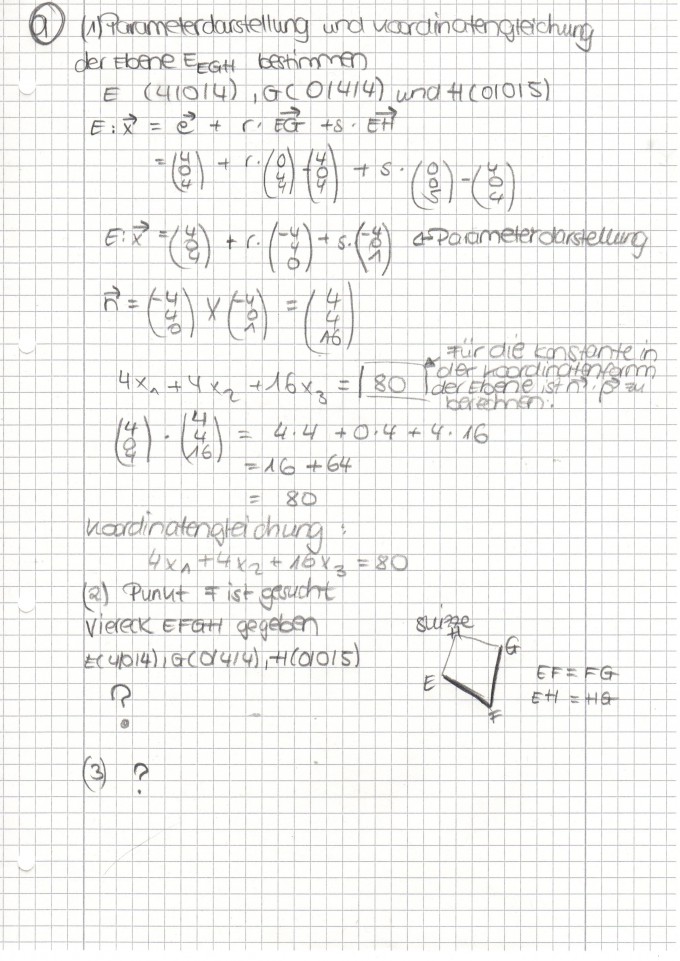 a) (1) Parameterdarstellung und Koordinatengleichung
der Ebene E_EGH bestimmen
E (4|0|4), G(0|4|4) und H(0|0|5)
E: x⃗ = e⃗ + r · EG⃗ + s · EH⃗
= (4 0 4) + r · (0 4 4) - (4 0 4) + s · (0 0 5) - (4 0 4)
E: x⃗ = (4 0 4) + r · (-4 4 0) + s · (-4 0 1) ← Parameterdarstellung
n⃗ = (-4 4 0) X (-4 0 1) = (4 4 16)
Für die Konstante in
der Koordinatenform
der Ebene ist n⃗ · p⃗ zu
berechnen.
4x₁ + 4x₂ + 16x₃ = 80
(4 0 4) · (4 4 16) = 4·4 + 0·4 + 4·16
= 16 + 64
= 80
Koordinatengleichung :
4x₁ + 4x₂ + 16x₃ = 80
(2) Punkt F ist gesucht
Viereck EFGH gegeben
E(4|0|4), G(0|4|4), H(0|0|5)
?
Skizze
H
G
E
F
EF = FG
EH = HG
(3) ?